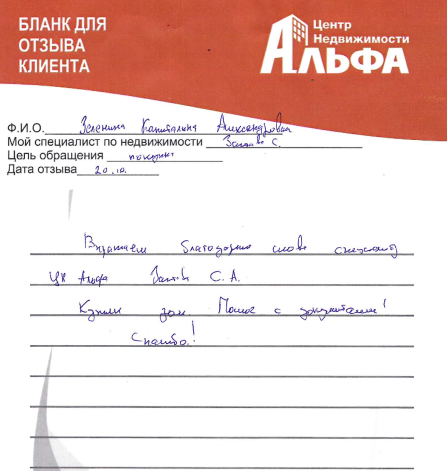 БЛАНК ДЛЯ
ОТЗЫВА
КЛИЕНТА
Центр
Недвижимости
АЛЬФА
Ф.И.О. Зеленина Капиталина Александровна
Мой специалист по недвижимости С.
Цель обращения
Дата отзыва 20.10.
Выражаем слова
Альфа С.А.
Купили дом Помог с документами!
Спасибо!